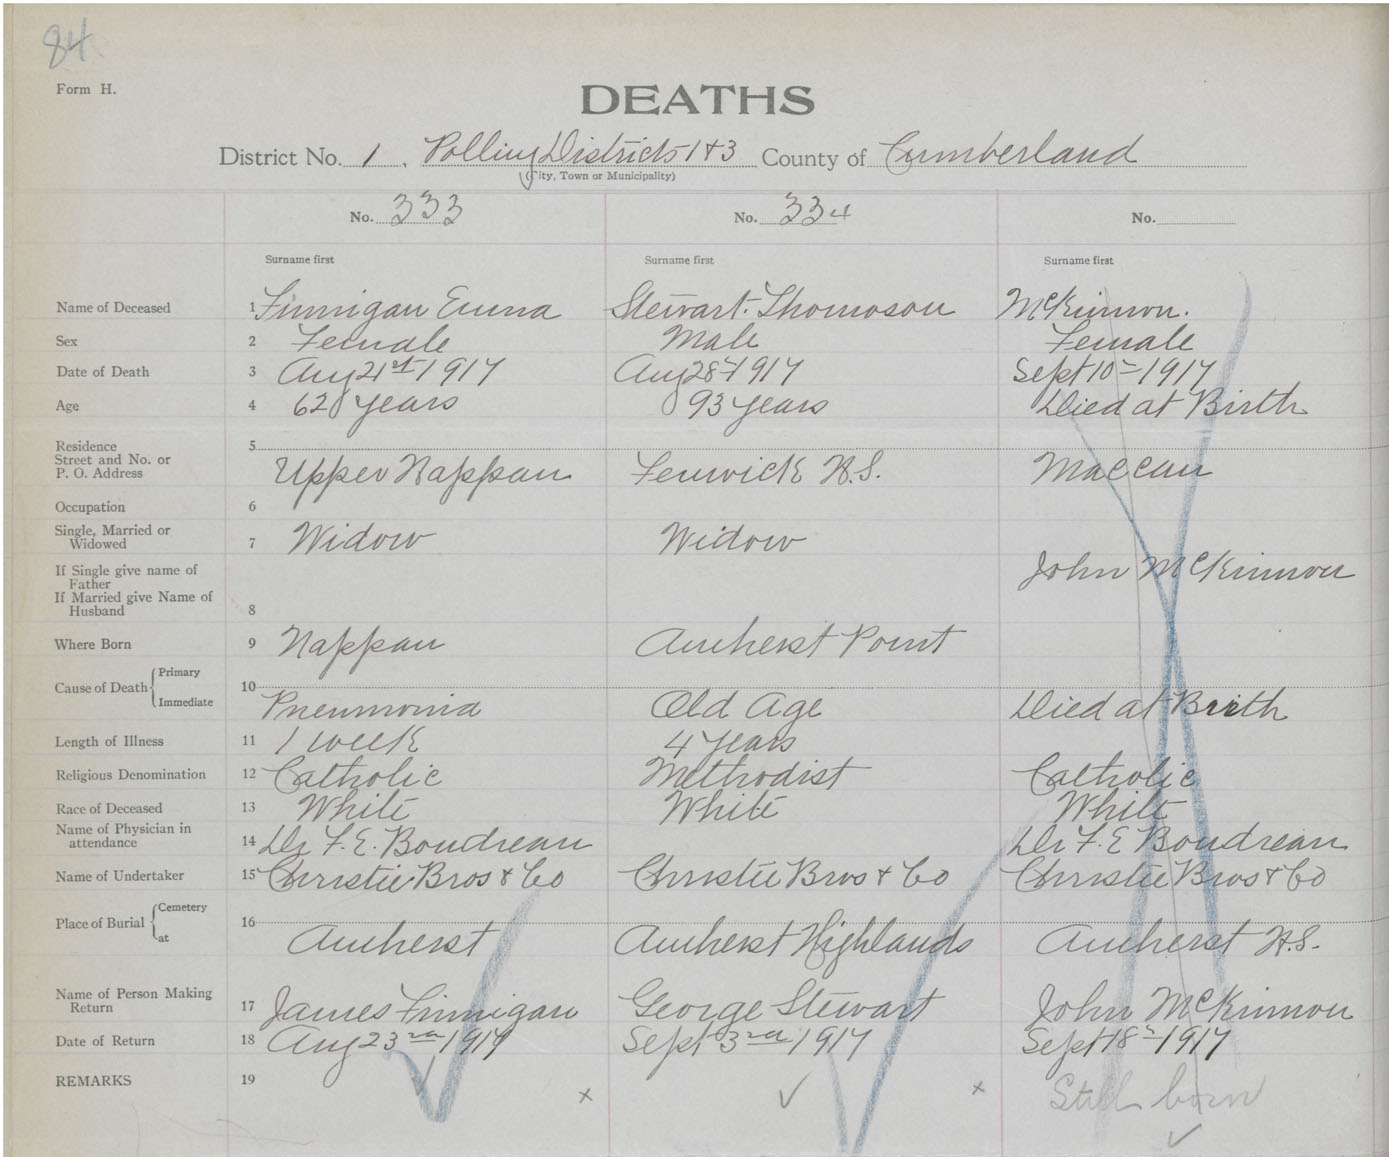 84
Form H.
DEATHS
District No. 1, Polling Districts 1 & 3 County of Cumberland
(City, Town or Municipality)
No. 333 No. 334 No.
Surname first Surname first Surname first
Name of Deceased 1 Finnigan Emma Stewart. Thomoson McKinnon.
Sex 2 Female Male Female
Date of Death 3 Aug 21st 1917 Aug 28 - 1917 Sept 10 - 1917
Age 4 62 years 93 years Died at Birth
Residence 5
Street and No. or
P. O. Address Upper Nappan Fenwick N.S. Maccan
Occupation 6
Single, Married or
Widowed 7 Widow Widow
If Single give name of
Father John McKinnon
If Married give Name of
Husband 8
Where Born 9 Nappan Amherst Point
Cause of Death { Primary 10
Immediate Pneumonia Old Age Died at Birth
Length of Illness 11 1 week 4 years
Religious Denomination 12 Catholic Methodist Catholic
Race of Deceased 13 White White White
Name of Physician in
attendance 14 Dr F. E. Boudreau Dr F. E Boudreau
Name of Undertaker 15 Christie Bros & Co Christie Bros & Co Christie Bros & Co
Place of Burial { Cemetery 16
at Amherst Amherst Highlands Amherst N.S.
Name of Person Making
Return 17 James Finnigan George Stewart John McKinnon
Date of Return 18 Aug 23rd 1917 Sept 3rd 1917 Sept 18 - 1917
REMARKS 19 Still born